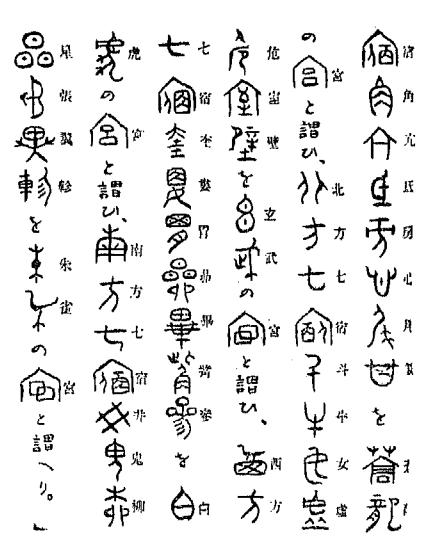 宿角亢氐房心尾箕を蒼龍
の宮と謂ひ、北方七宿斗牛女虛
危室壁を玄武の宮と謂ひ、西方
七宿奎婁胃昴畢觜參を白
虎の宮と謂ひ、南方七宿井鬼柳
星張翼軫を朱雀の宮と謂へり。」